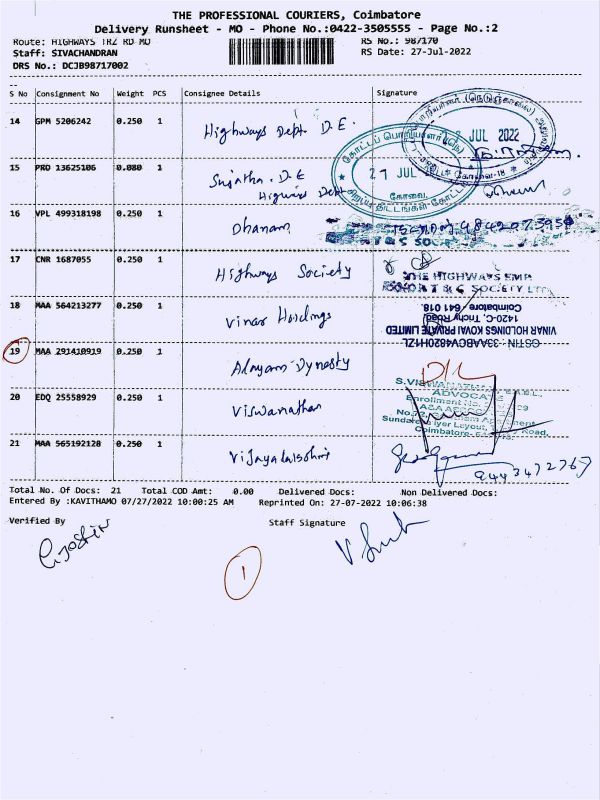 THE PROFESSIONAL COURIERS, Coimbatore
Delivery Runsheet - MO - Phone No.:0422-3505555 - Page No.:2
Route: HIGHWAYS TRZ RD MO
RS No.: 987170
Staff: SIVACHANDRAN
RS Date: 27-Jul-2022
DRS No.: DCJB98717002
S No Consignment No Weight PCS Consignee Details Signature
14 GPM 5206242 0.250 1 Highways Dept D.E.
JUL 2022
15 PRO 13625106 0.080 1 Sujatha. D.E
Highways Dept
கோவை
16 VPL 499318198 0.250 1 Dhanam
17 CNR 1687055 0.250 1 Highways Society
THE HIGHWAYS EMP
SOCIETY LTD
18 MAA 564213277 0.250 1 Vinar Holdings
VINAR HOLDINGS KOVAI PRIVATE LIMITED
1420-C, Trichy Road,
Coimbatore 641 018.
GSTIN : 33AABCV4820H1ZL
19 MAA 291410919 0.250 1 Alayam Dynasty
20 EDQ 25558929 0.250 1 Viswanathan
ADVOCATE
Enrollment No.
Road,
Coimbatore
21 MAA 565192128 0.250 1 Vijayalakshmi
9443472767
Total No. Of Docs: 21 Total COD Amt: 0.00 Delivered Docs: Non Delivered Docs:
Entered By :KAVITHAMO 07/27/2022 10:00:25 AM Reprinted On: 27-07-2022 10:06:38
Verified By Staff Signature
1